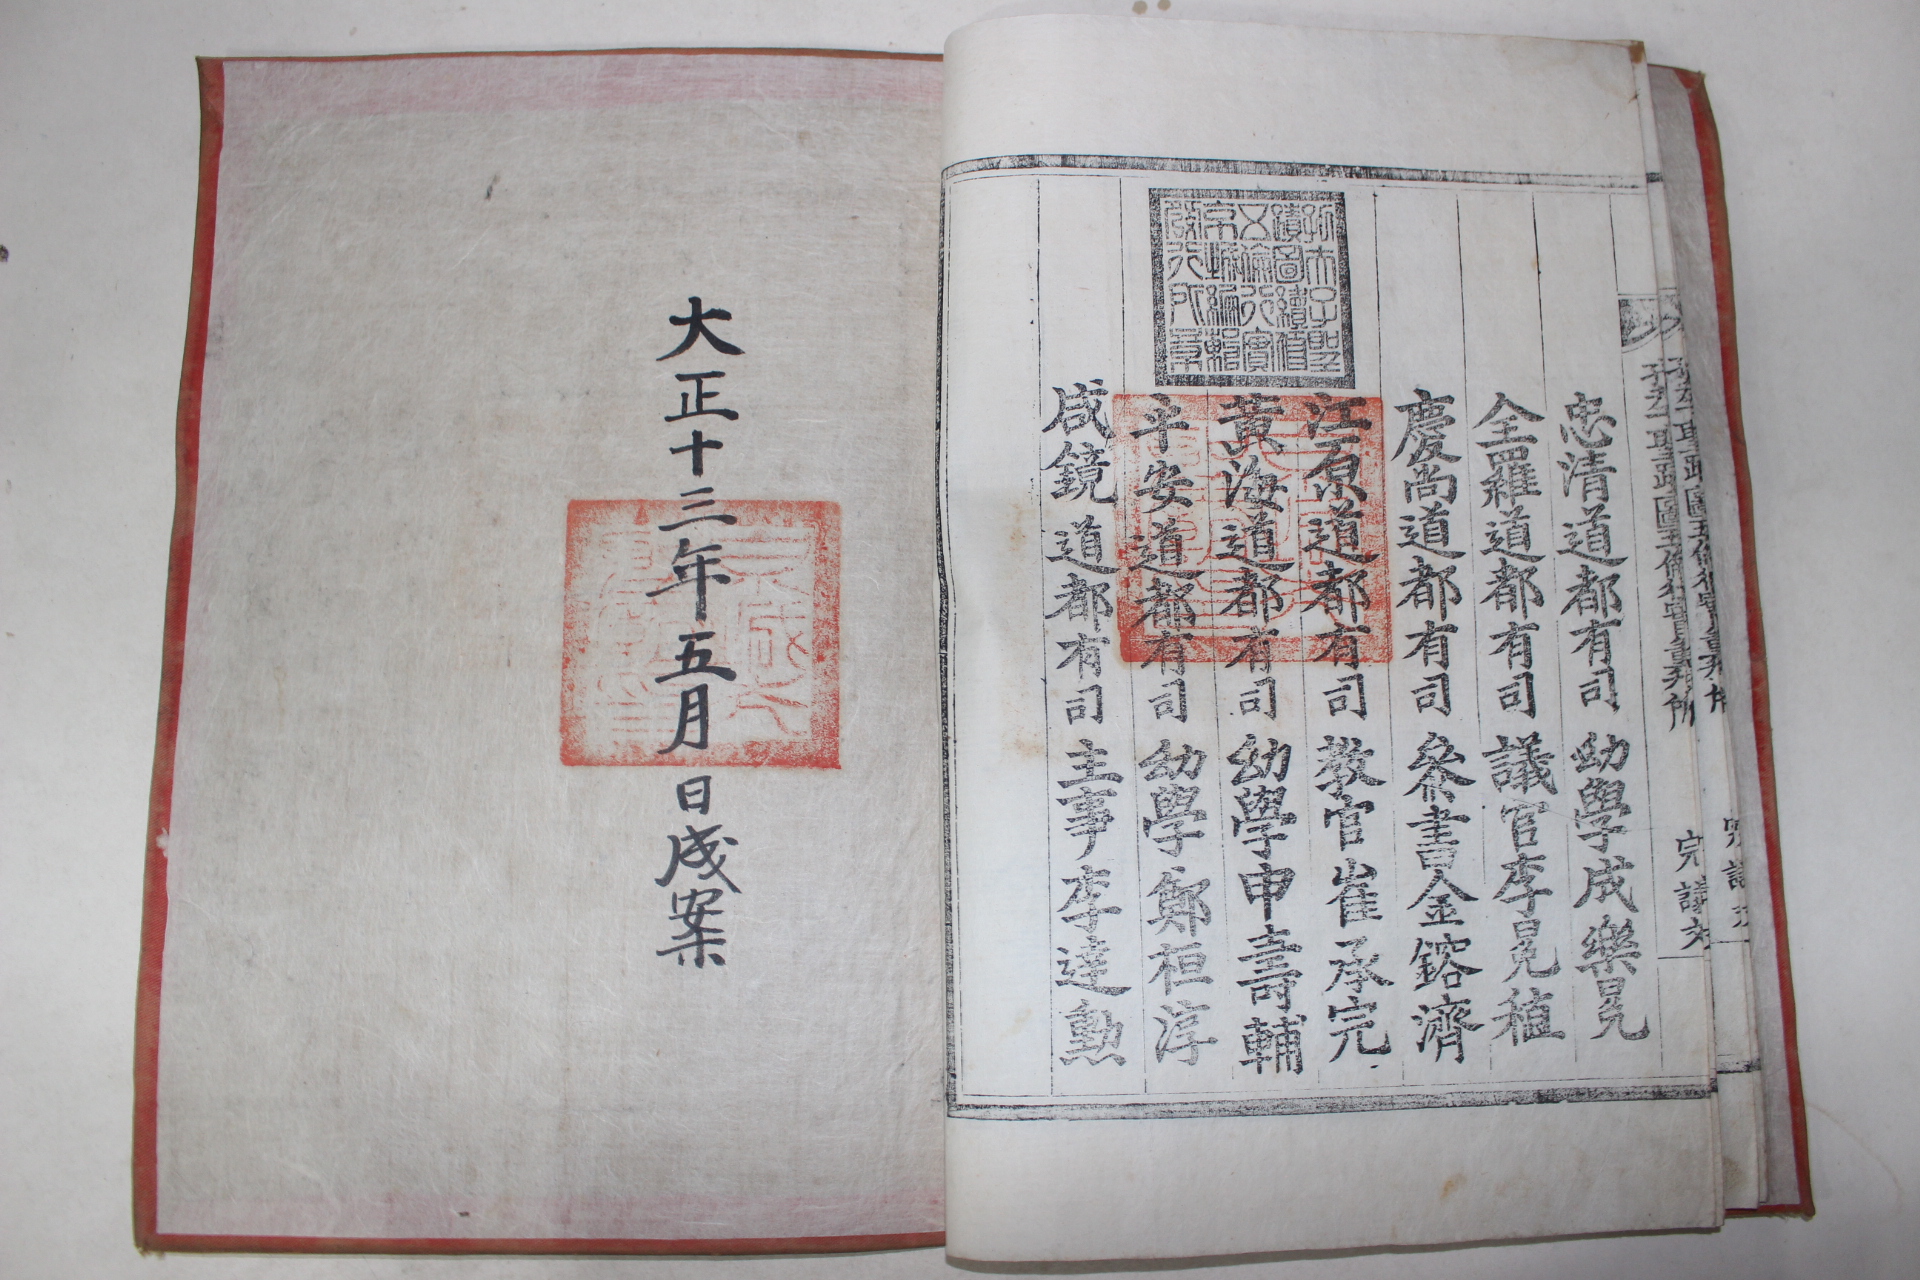 忠清道都有司 幼學成樂冕
全羅道都有司 議官李冕稙
慶尚道都有司 參書金鎔濟
江原道都有司 教官崔承完
黃海道都有司 幼學申壽輔
平安道都有司 幼學鄭桓淳
咸鏡道都有司 主事李達勲
大正十三年五月 日成案